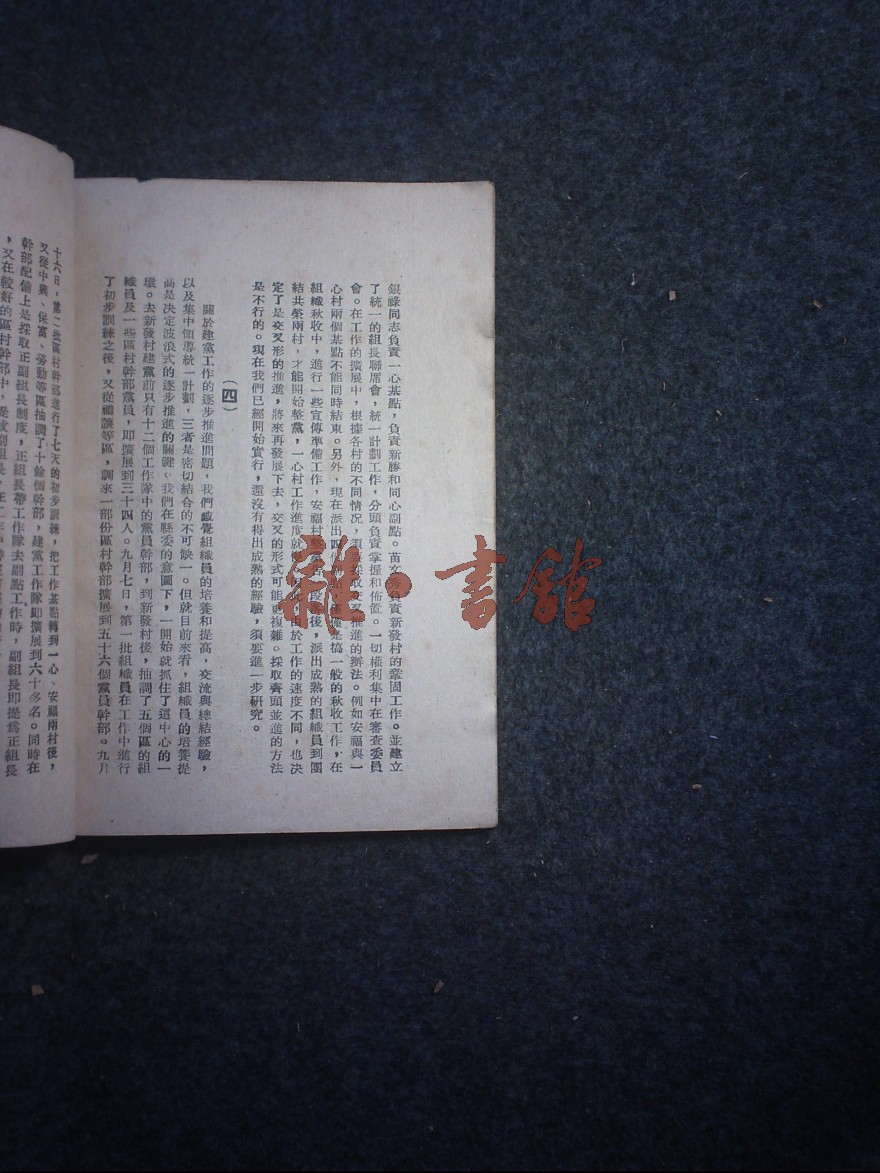 銀祿同志負責一心基點，負責新勝和同心副點。苗文秀負責新發村的鞏固工作。並建立
了統一的組長聯席會，統一計劃工作，分頭負責掌握和佈置。一切權利集中在審查委員
會。在工作的擴展中，根據各村的不同情况，須採取交叉推進的辦法。例如安福與一
心村兩個基點不能同時結束。另外，現在派出四個是搞一般的秋收工作，在
組織秋收中，進行一些宣傳準備工作，安福村整黨告一段落後，派出成熟的組織員到團
結共榮兩村，才能開始整黨，一心村工作進度就由於工作的速度不同，也决
定了是交叉形的推進，將來再發展下去，交叉的形式可能更複雜。採取齊頭並進的方法
是不行的。現在我們已經開始實行，還沒有得出成熟的經驗，須要進一步研究。
（四）
關於建黨工作的逐步推進問題，我們感覺組織員的培養和提高，交流與總結經驗，
以及集中領導統一計劃，三者是密切結合的不可缺一。但就目前來看，組織員的培養提
高是决定波浪式的逐步推進的關鍵。我們在縣委的意圖下，一開始就抓住了這中心的一
環。去新發村建黨前只有十二個工作隊中的黨員幹部，到新發村後，抽調了五個區的組
織員及一些區村幹部黨員，即擴展到三十四人。九月七日，第一批組織員在工作中進行
了初步訓練之後，又從禮讓等區，調來一部份區村幹部擴展到五十六個黨員幹部。九月
十六日，第二批區村幹部進行了七天的初步訓練，把工作基點轉到一心、安福兩村後，
又從中興、保富、勞動等區抽調了十餘個幹部，建黨工作隊即擴展到六十多名。同時在
幹部配備上是採取正副組長制度，正組長帶工作隊去副點工作時，副組長即提爲正組長
，又在較好的區村幹部中，提拔副組長，
雜·書館